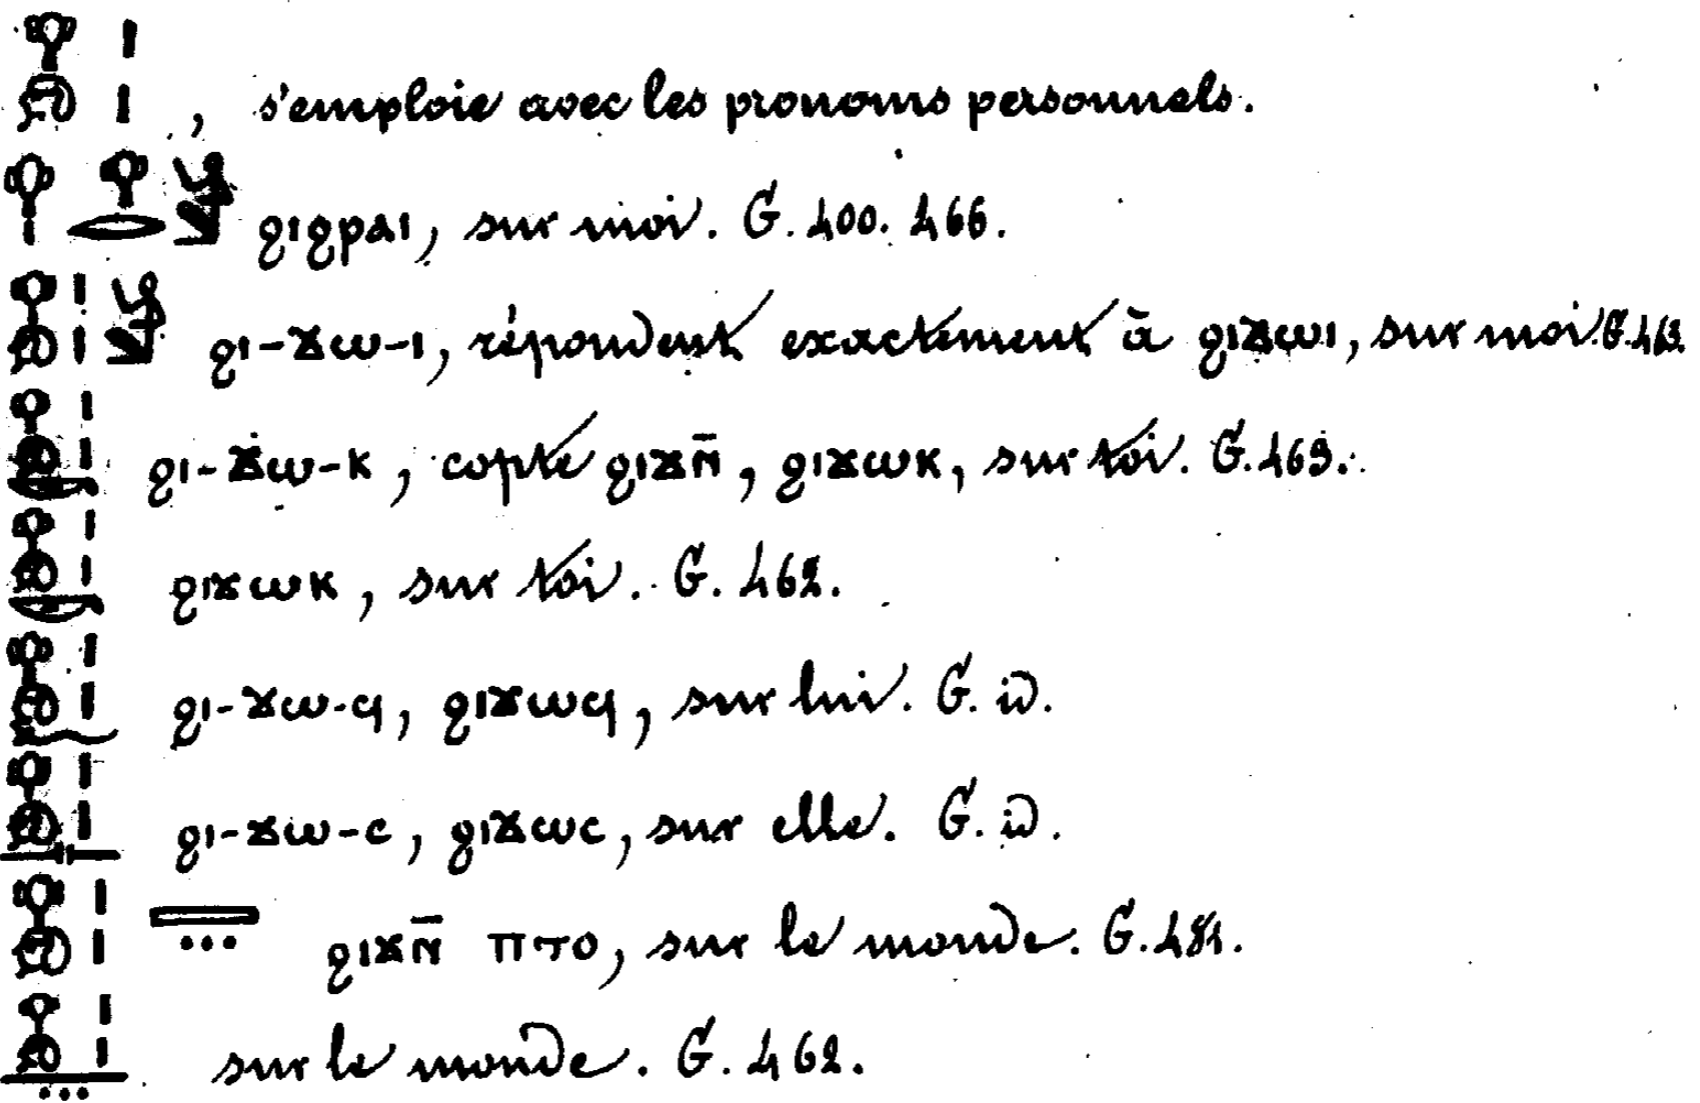 𓁷𓏤𓁶𓏤, s'emploie avec les pronoms personnels.
ϩⲓϩⲣⲁⲓ, sur moi. G. 400. 466.
ϩⲓ-ϫⲱ-ⲓ, répondent exactement à ϩⲓϫⲱⲓ, sur moi. G. 463.
ϩⲓ-ϫⲱ-ⲕ, copte ϩⲓϫⲛ̄, ϩⲓϫⲱⲕ, sur toi. G. 463.
ϩⲓϫⲱⲕ, sur toi. G. 462.
ϩⲓ-ϫⲱ-ϥ, ϩⲓϫⲱϥ, sur lui. G. id.
ϩⲓ-ϫⲱ-ⲥ, ϩⲓϫⲱⲥ, sur elle. G. id.
ϩⲓϫⲛ̄ ⲡⲧⲟ, sur le monde. G.
sur le monde. G. 462.